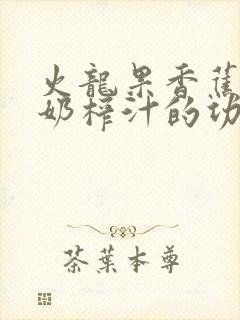 火龍果香蕉
奶榨汁的功
茶葉本尊